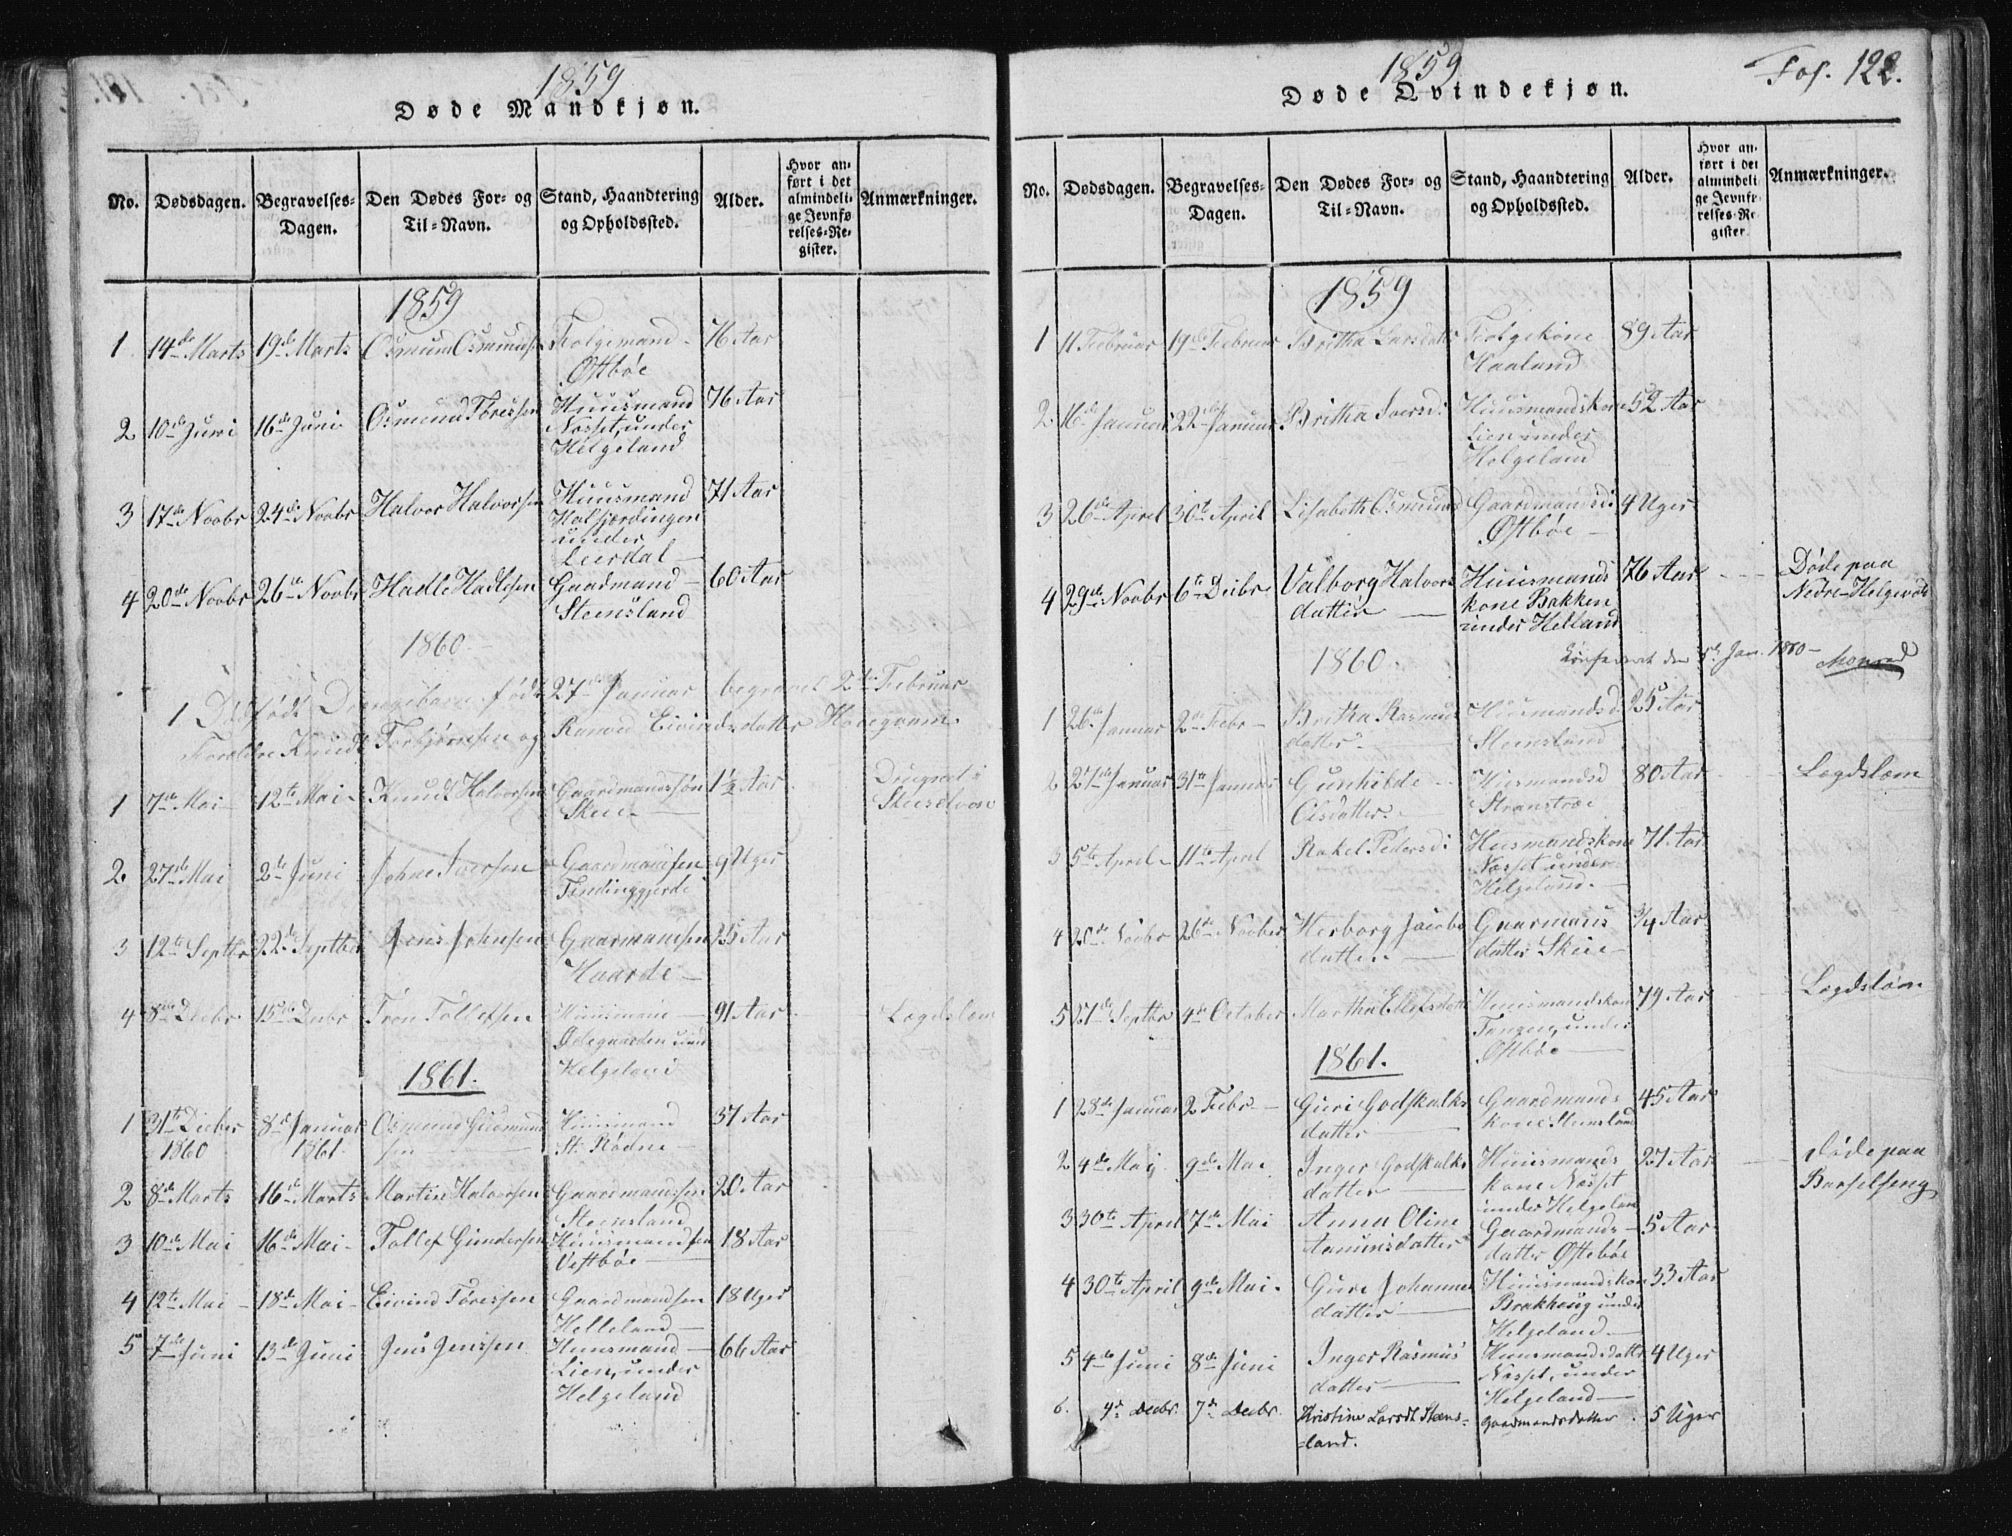 1859
Døde Mandkjøn.
No. Dødsdagen. Begravelses-Dagen. Den Dødes For- og Til-Navn. Stand, Haandtering og Opholdssted. Alder. Hvor anført i det almindelige Jevnførelses-Register. Anmærkninger.
1859
1 14de Marts 19de Marts Osmund Osmundsen Folgemand Østbøe 76 Aar
2 10de Juni 16de Juni Osmund Toressen Huusmand Nasset, under Helgeland 76 Aar
3 17de Novbr 24de Novbr Halvor Halvorsen Huusmand Halfjordingen under Leerdal 71 Aar
4 20de Novbr 26de Novbr Hadle Hadlesen Gaardmand Steensland 60 Aar
1860
1 Dødfødt Drengebarn født 27de Januar begravet 2den Februar
Forældre Knudt Torbjørnsen og Ranvei Eivindsdatter
1 7de Mai 12te Mai Knudt Halvorsen Gaardmandssøn Skeie 1½ Aar
2 27de Mai 2de Juni Johne Iversen Gaardmandsen 9 Uger
3 12te Septbr 22de Septbr Jens Johnsen Gaarmandsen Haarde 25 Aar
4 8de Decbr 15de Decbr Tron Tollefsen Huusmand Ødegaarden und Helgeland 91 Aar Lægdslem
1861.
1 31te Decber 1860 8de Januar 1861 Osmund Gudmundsen Huusmand St. Rødne 37 Aar
2 8de Marts 16de Marts Martin Halvorsen Gaardmandssen Steensland 20 Aar
3 10de Mai 16de Mai Tollef Gundersen Huusmandsen Vestbøe 18 Aar
4 12te Mai 18de Mai Eivind Toressen Gaardmandsen Helleland 18 Uger
5 7de Juni 13de Juni Jens Jenssen Huusmand Lien, under Helgeland 66 Aar
1859
Fol. 122.
Døde Qvindekjøn.
No. Dødsdagen. Begravelses-Dagen. Den Dødes For- og Til-Navn. Stand, Haandtering og Opholdssted. Alder. Hvor anført i det almindelige Jevnførelses-Register. Anmærkninger.
1859
1 11 Februar 19de Februar Britha Larsdatter Folgekone Haaland 89 Aar
2 16de Januar 22de Januar Britha Iversd. Huusmandskone Lien under Helgeland 52 Aar
3 26de April 30te April Lisabeth Osmundsd Gaardmandsd. Østbøe 4 Uger
4 29de Novbr 6te Decbr Valborg Halvorsdatter Huusmandskone Bakken under Helland 76 Aar Døde paa Nedre-Helgevold
1860 Konfereret den 5te Jan. 1860
1 26de Januar 2de Febr Britha Rasmusdatter Huusmandsd Steensland 25 Aar
2 27de Januar 31te Januar Gunhilde Olsdatter Huusmandsd 80 Aar Lægdslem
3 5te April 11te April Rakel Pedersd. Husmandskone Nasset under Helgeland. 71 Aar
4 20de Novbr 26te Novber Herborg Jacobsdatter Gaarmansdatter Skeie ¾ Aar
5 27de Septbr 4de October Martha Ellefsdatter Huusmandskone Tangen, under Østbøe 79 Aar Lægdslem
1861.
1 28de Januar 2 Febr Guri Godskalksdatter Gaardmandskone Steensland 45 Aar
2 4de Maj 9de Mai Inger Godskalksdatter Huusmandskone Nasset under Helgeland 27 Aar Døde paa Barselseng
3 30te April 7de Mai Anna Oline Aamunsdatter Gaardmandsdatter Østebøe 5 Aar
4 30te April 9de Mai Gure Johannesdatter Huusmandskone Brakhoug under Helgeland 33 Aar
5 4de Juni 8de Juni Inger Rasmusdatter Huusmandsdatter Nasset, under Helgeland 4 Uger
6. 4de Decbr. 7de Decbr. Kristine Larsdt Stens-land. gaardmandsdatter 5 Uger